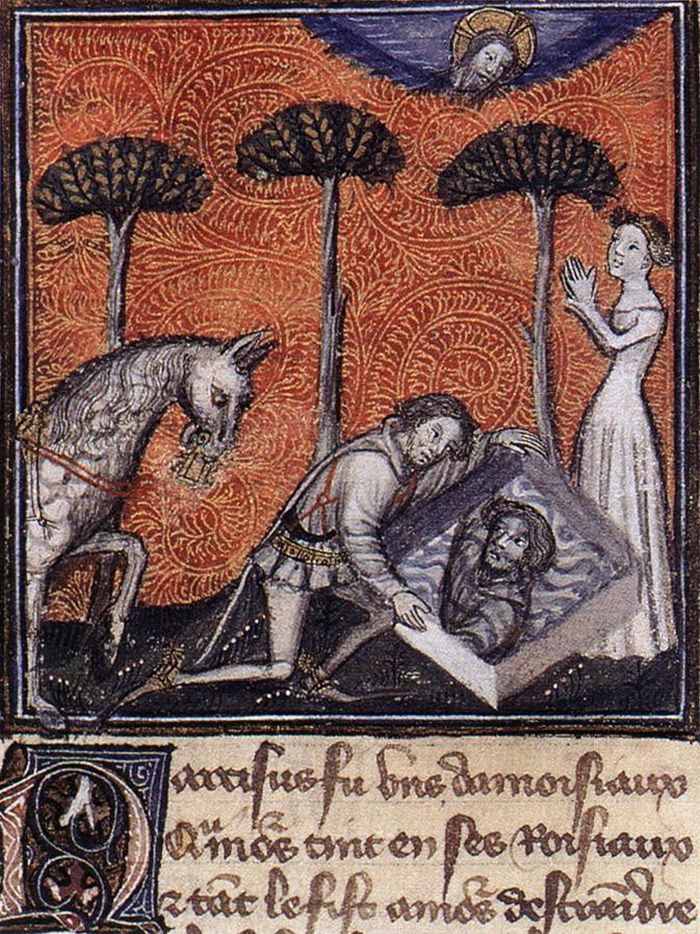 Narcisus fu vns damoisiaux
Quamors tint en ses Roisiaux
Et tāt le fist amors destraīdre